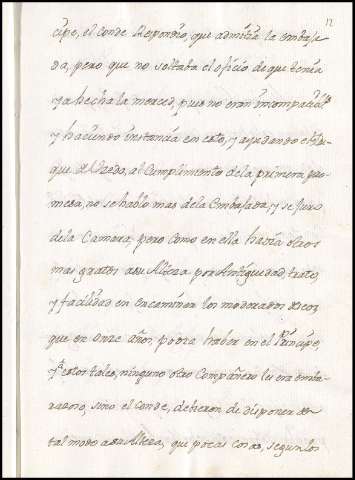 12
cipe, el conde Respondio, que admitia la embaja
da, pero que no soltaba el oficio de que tenia
ya hecha la merced, pues no eran incompatibles
y haciendo instancia en esto, y ayudando el Du
que de Uzedo, al Cumplimiento de la primera pro
mesa, no se hablo mas de la Embajada, y se Juro
de la Camara, pero como en ella habia otros
mas gratos a su Alteza por Antiguedad, trato,
y facilidad en encaminar los moderados deseos
que en onze años, podia haber en el Principe,
y qe estos tales, ninguno otro Compañero les era emba
razoso, sino el conde, debieron de disponer de
tal modo a su Alteza, que pocas cosas, segun los